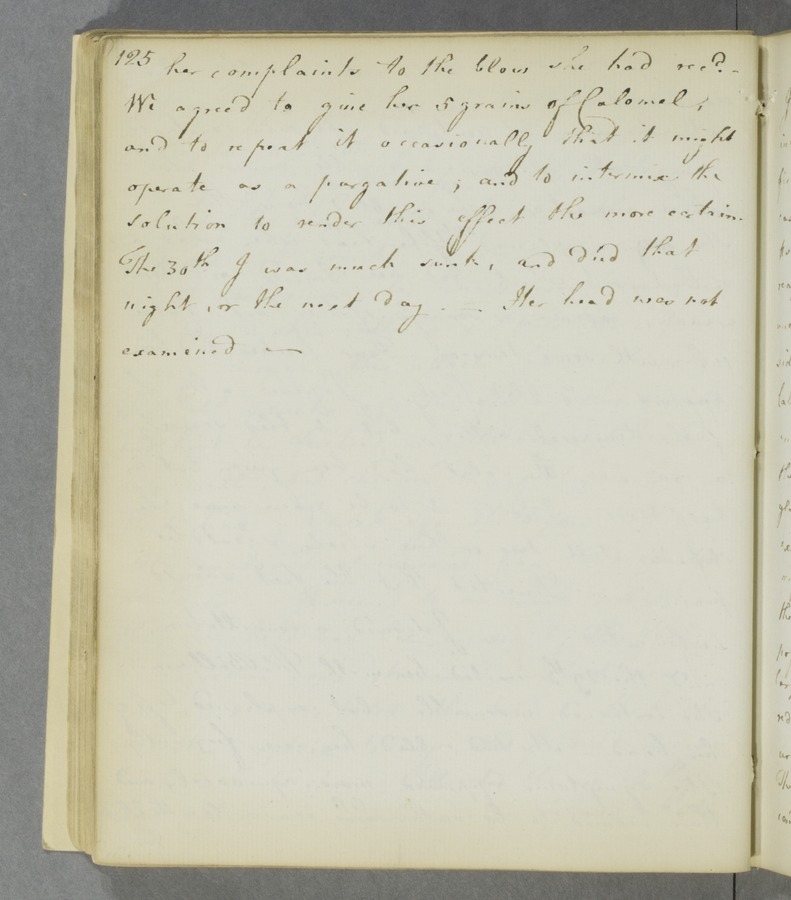 125 her complaints to the blow she had recd.
We agreed to give her 5 grains of Calomel,
and to repeat it occasionally that it might
operate as a purgative; and to intermix the
solution to render this effect the more certain.
The 30th J was much sunk, and died that
night, or the next day. — Her head was not
examined —